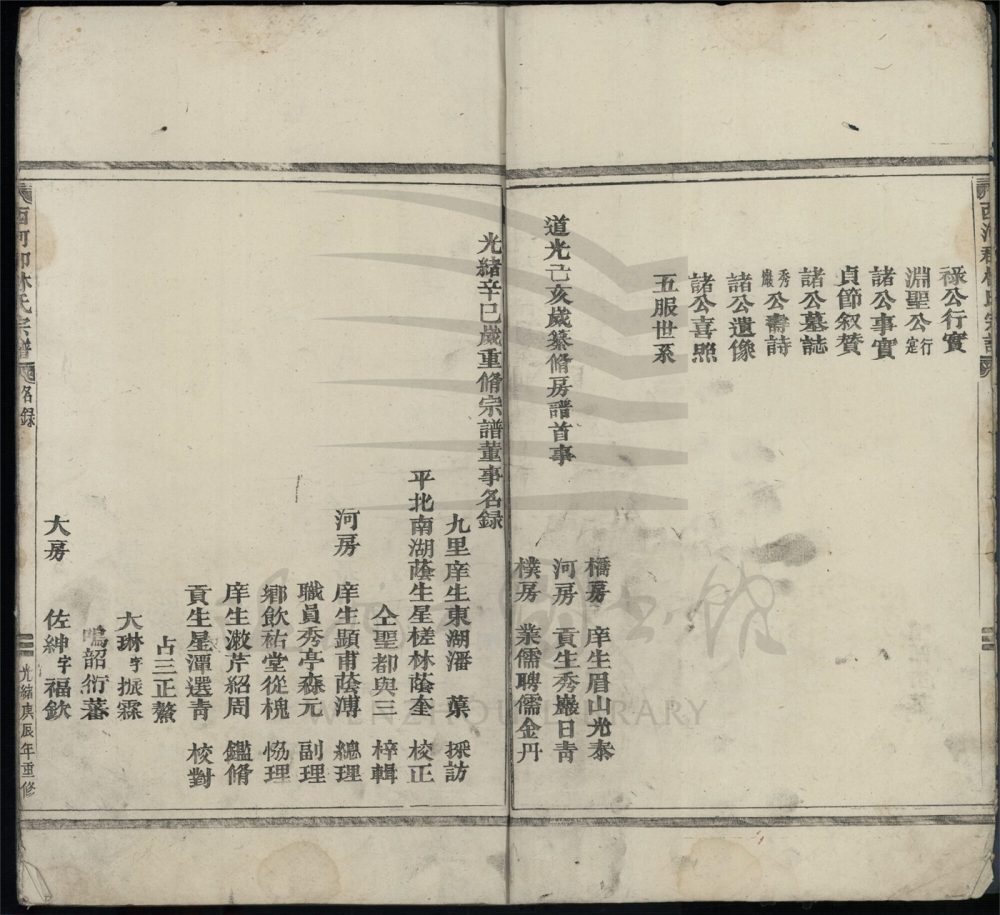 西河郡林氏宗譜
祿公行實
淵聖公行寔
諸公事實
貞節叙賛
諸公墓誌
秀巖公壽詩
諸公遺像
諸公喜照
五服世系
道光己亥歲纂脩房譜首事
橋房 庠生眉山光泰
河房 貢生秀巖日青
樸房 業儒聘儒金丹
光緒辛巳歲重脩宗譜董事名録
九里庠生東湖潘 葉 採訪
平北南湖蔭生星槎林蔭奎 校正
仝聖都與三 梓輯
河房 庠生顯甫蔭溥 總理
職員秀亭森元 副理
鄉飲祐堂從槐 恊理
庠生澂芹紹周 鑑脩
貢生星潭選青 校對
占三正鰲
大琳字振霖
鳴韶衍蕃
大房 佐紳字福欽
西河郡林氏宗譜 名録 光緒庚辰年重修
WENZHOU LIBRARY